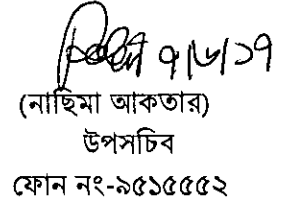 ৭/৬/১৭
(নাছিমা আকতার)
উপসচিব
ফোন নং-৯৫১৫৫৫২